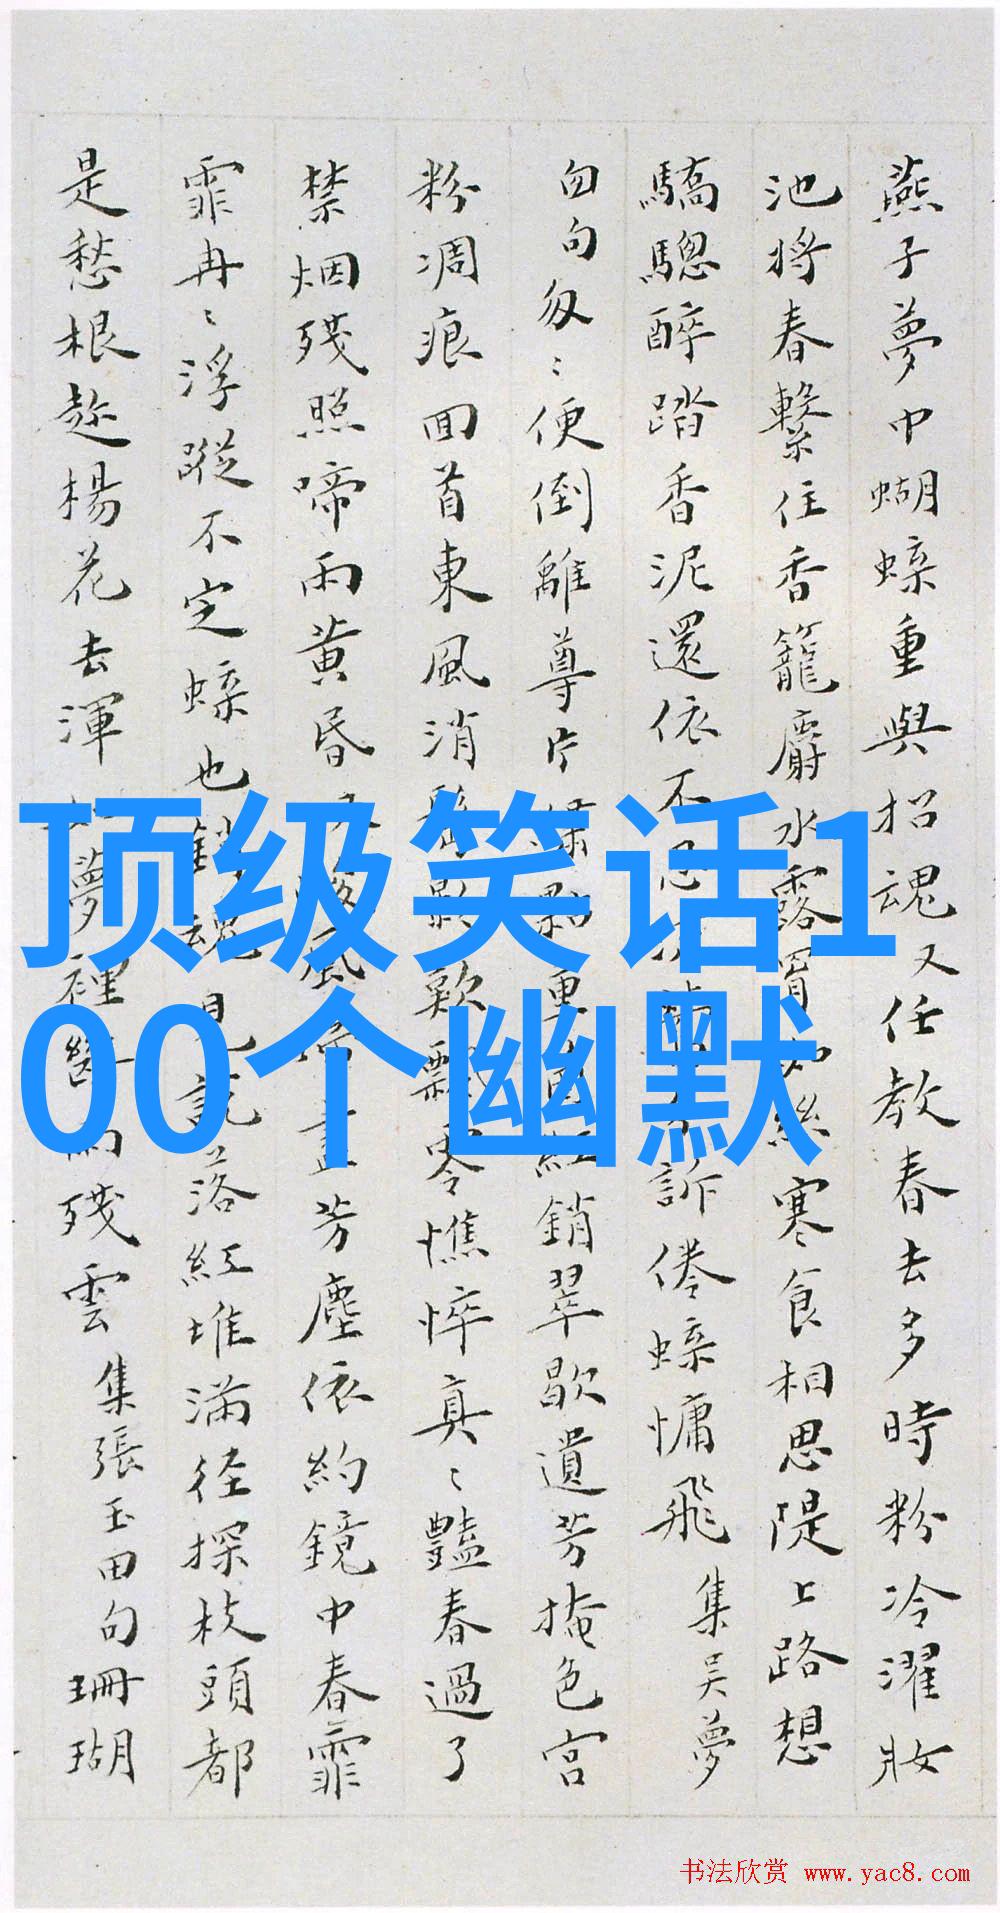 燕子夢中蝴蜨重與招魂又任教春去多時粉冷濯妝
池將春繫住香籠麝水露眉如絲寒食相思隄上路想
驕驄醉踏香泥還依不忍訴倦蜨慵飛集吴夢
匆匆〻便倒離尊片重銷翠歇遺芳掩色宫
粉凋痕回首東風消飄零憔悴真〻豔春過了
禁烟殘照啼雨黄昏風畫芳塵依約鏡中春霏
霏冉〻浮蹤不定蜨也魂見説落紅堆滿径探枝頭都
是愁根趂楊花去渾夢裡殘雲集張玉田句珊瑚
顶级笑话1
00个幽默
书法欣赏 www.yac8.com